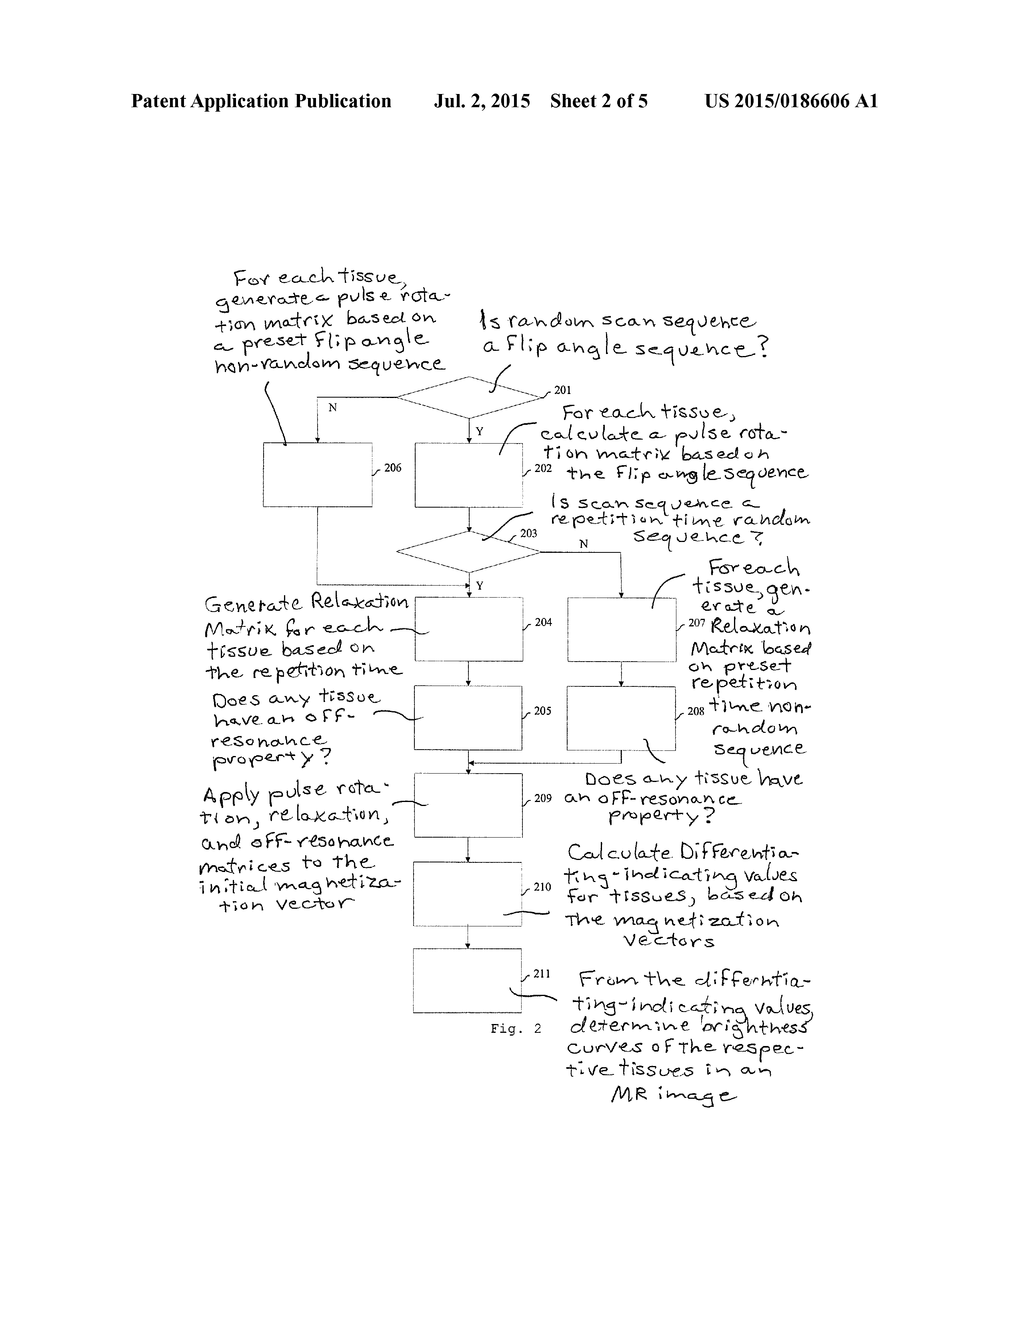 Patent Application Publication Jul. 2, 2015 Sheet 2 of 5 US 2015/0186606 A1
For each tissue,
generate a pulse rota-
tion matrix based on
a preset flip angle
non-random sequence
Is random scan sequence
a flip angle sequence?
201
N
Y
For each tissue,
calculate a pulse rota-
tion matrix based on
the flip angle sequence
206
202
Is scan sequence a
repetition time random
sequence?
203
N
Y
Generate Relaxation
Matrix for each
tissue based on
the repetition time
204
For each
tissue, gen-
erate a
207 Relaxation
Matrix based
on preset
repetition
time non-
random
sequence
Does any tissue
have an off-
resonance
property?
205
208
Does any tissue have
an off-resonance
property?
Apply pulse rota-
tion, relaxation,
and off-resonance
matrices to the
initial magnetiza-
tion vector
209
Calculate Differentia-
ting-indicating values
for tissues, based on
the magnetization
vectors
210
211
From the differntia-
ting-indicating values,
determine brightness
curves of the respec-
tive tissues in an
MR image
Fig. 2